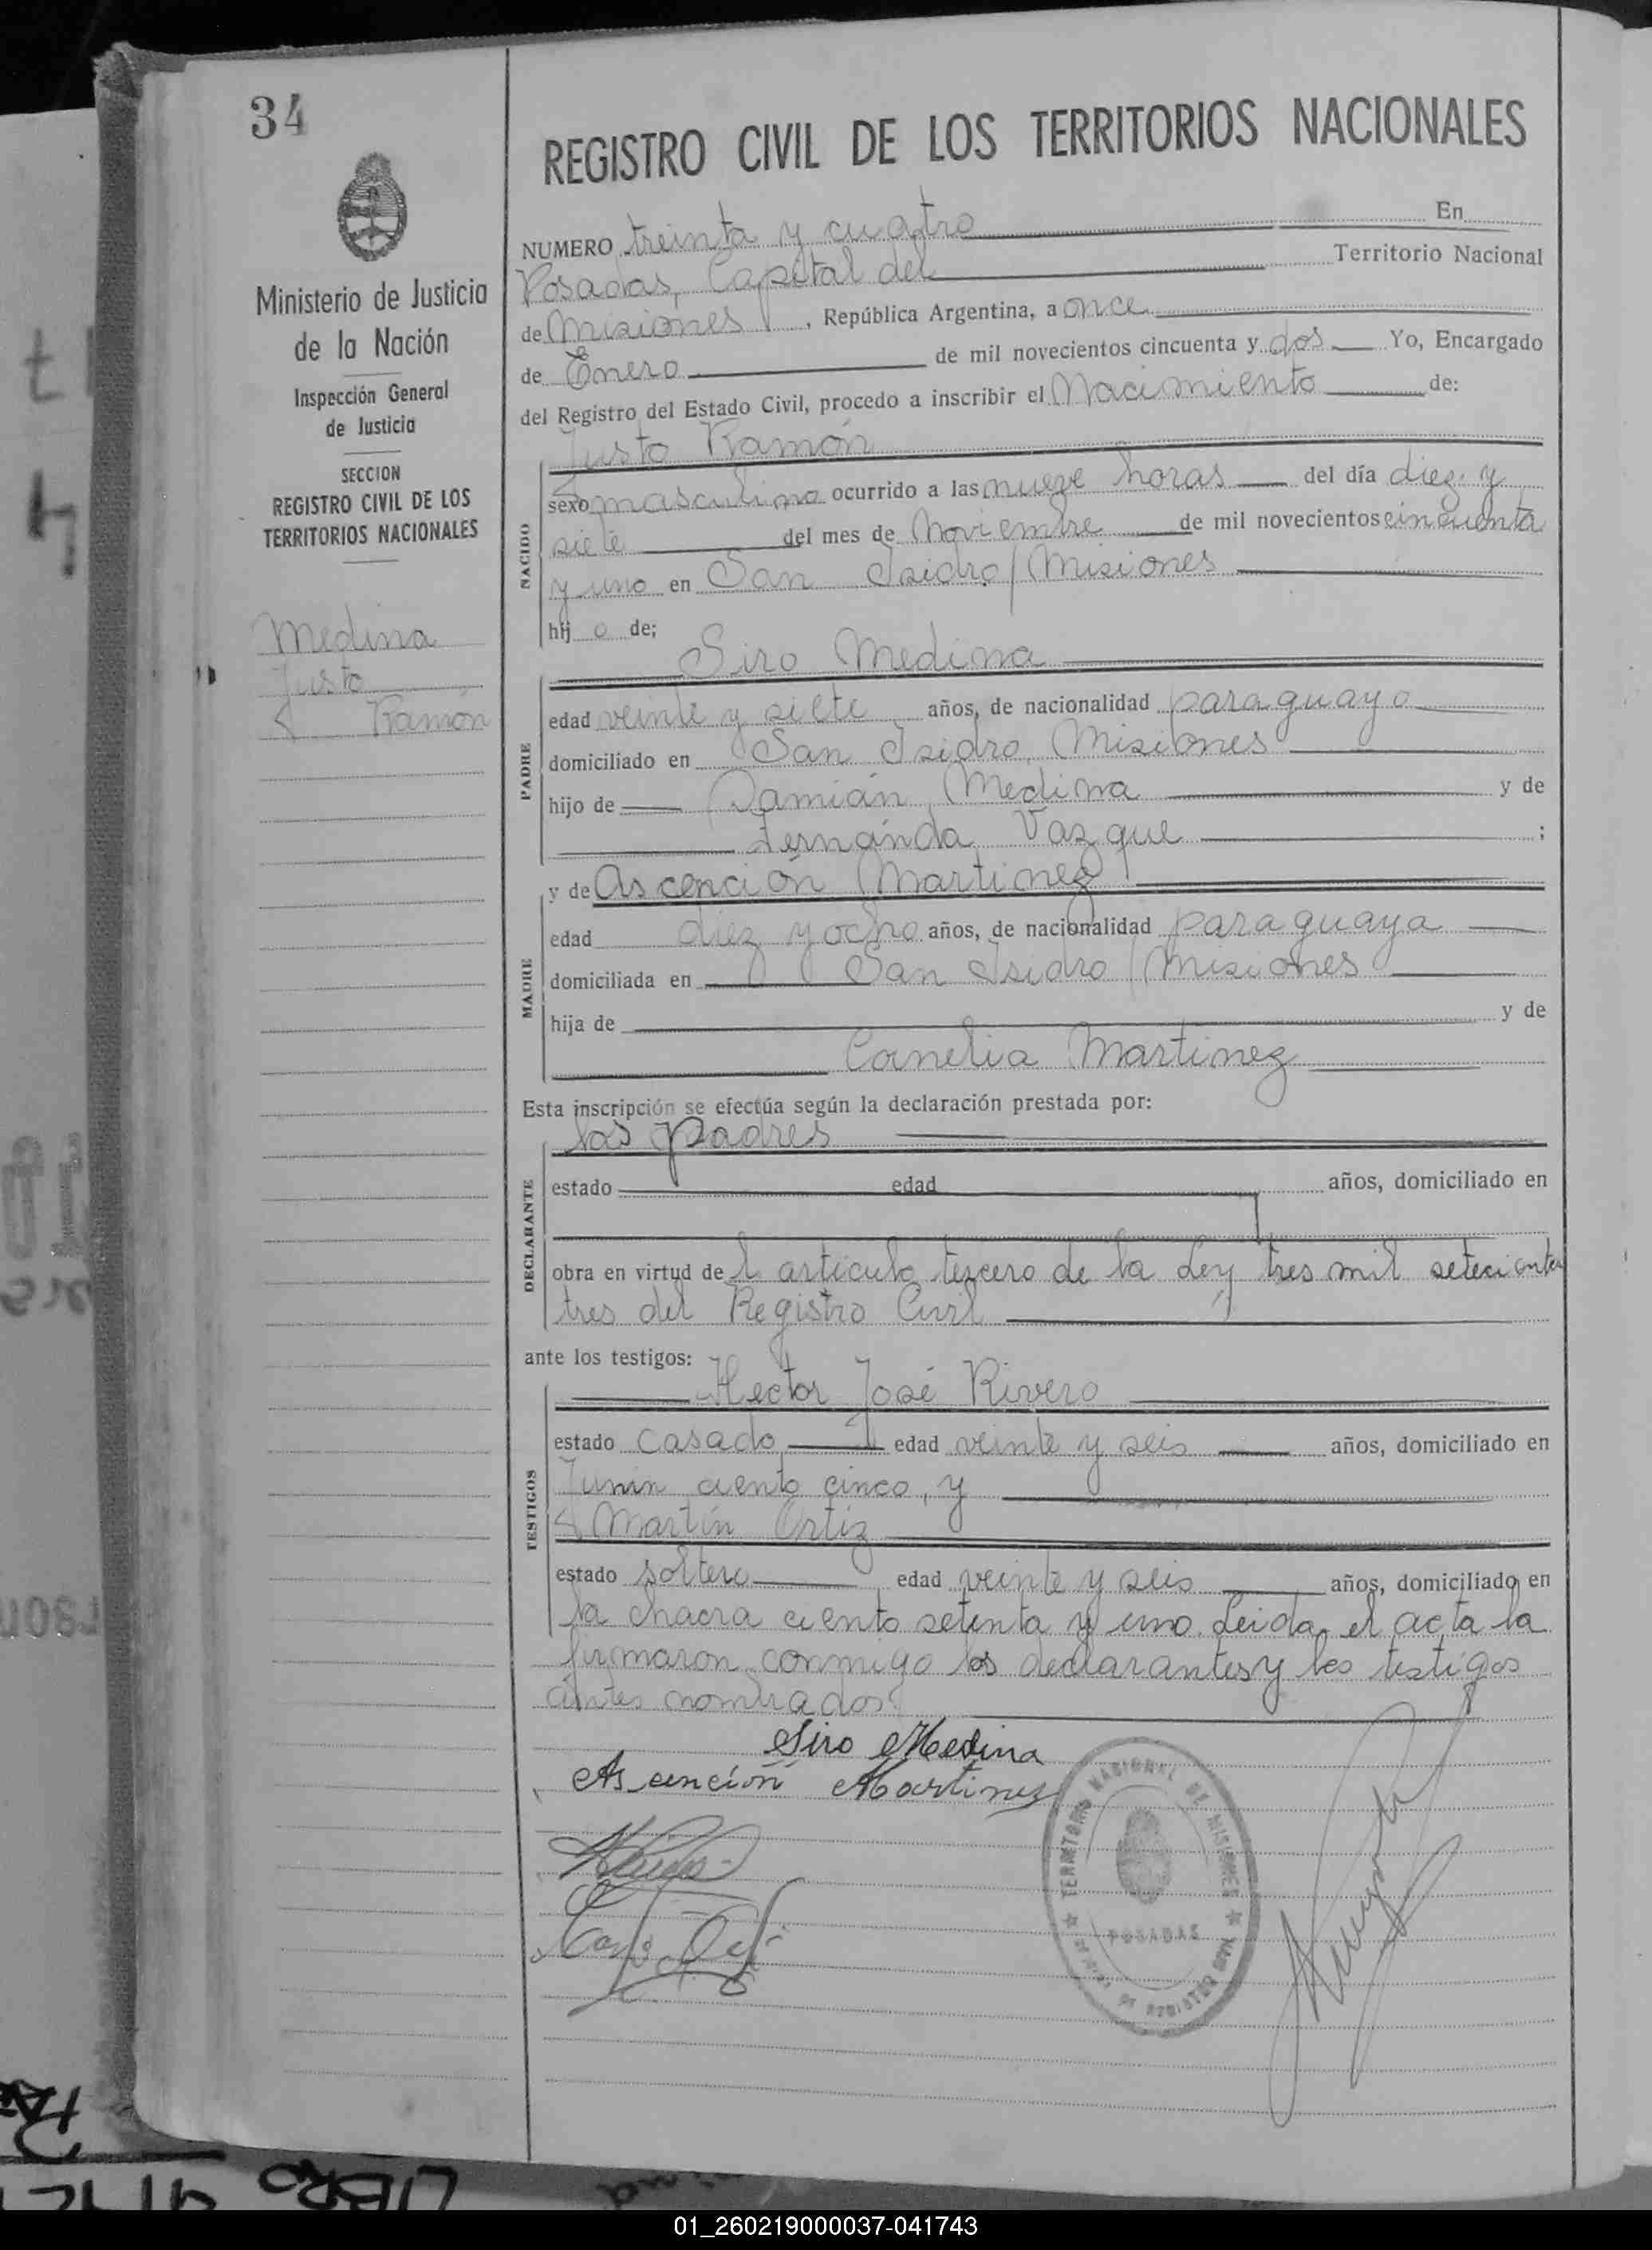 34
Ministerio de Justicia
de la Nación
Inspección General
de Justicia
SECCION
REGISTRO CIVIL DE LOS
TERRITORIOS NACIONALES
Medina
Justo
Ramón
REGISTRO CIVIL DE LOS TERRITORIOS NACIONALES
NUMERO treinta y cuatro En
Posadas, Capital del Territorio Nacional
de Misiones, República Argentina, a once
de Enero de mil novecientos cincuenta y dos Yo, Encargado
del Registro del Estado Civil, procedo a inscribir el Nacimiento de:
Justo Ramón
NACIDO
sexo masculino ocurrido a las nueve horas del día diez y
siete del mes de Noviembre de mil novecientos cincuenta
y uno en San Isidro, Misiones
hij o de;
Siro Medina
PADRE
edad veinte y siete años, de nacionalidad paraguayo
domiciliado en San Isidro, Misiones
hijo de Damián Medina y de
Fernánda Vazque ;
y de Ascención Martinez
MADRE
edad diez y ocho años, de nacionalidad paraguaya
domiciliada en San Isidro, Misiones
hija de y de
Cornelia Martinez
Esta inscripción se efectúa según la declaración prestada por:
los padres
DECLARANTE
estado edad años, domiciliado en
obra en virtud de l artículo tercero de la Ley tres mil setecientos
tres del Registro Civil
ante los testigos:
Hector José Rivero
TESTIGOS
estado casado edad veinte y seis años, domiciliado en
Junin ciento cinco, y
Martín Ortiz
estado soltero edad veinte y seis años, domiciliado en
la chacra ciento setenta y uno. Leida el acta la
firmaron conmigo los declarantes y los testigos
antes nombrados.
Siro Medina
Ascención Martinez
TERRITORIO NACIONAL DE MISIONES
POSADAS
LIBRO
01_260219000037-041743